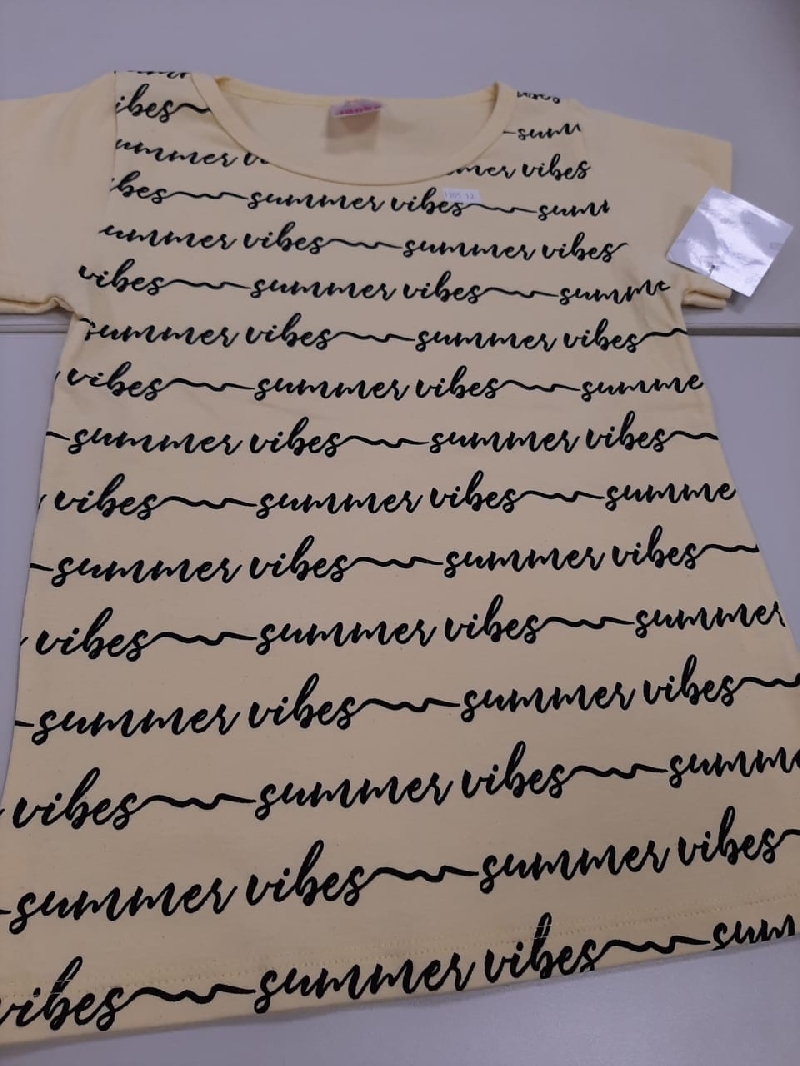 ibes
summ
ummer v
mer vibes
ibes summer vibes summ
ummer vibes summer vibes
vibes summer vibes summe
summer vibes summer vibes
vibes summer vibes summe
summer vibes summer vibes
vibes summer vibes summe
summer vibes summer vibes
vibes summer vibes summer
summer vibes summer vibes
vibes summer vibes summe
summer vibes summer vibes
vibes summer vibes summ